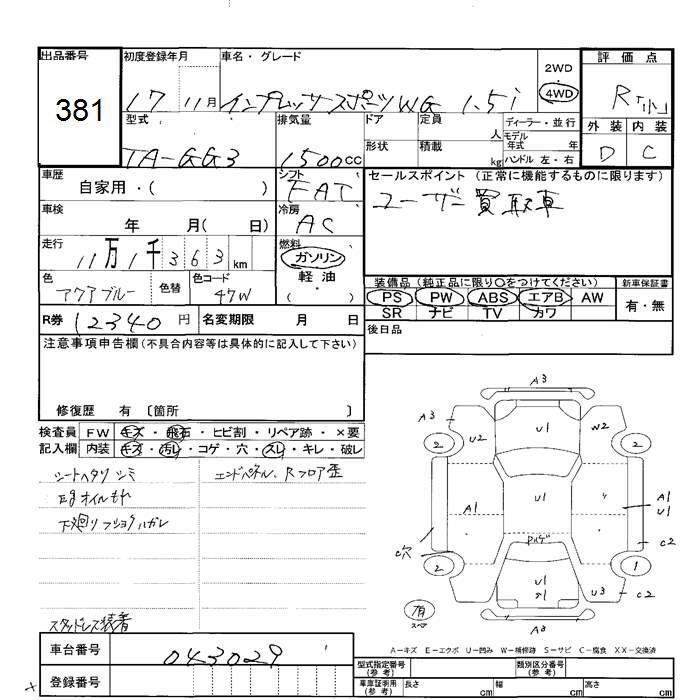 出品番号
381
初度登録年月
17 11月
車名・グレード
インプレッサースポーツWG 1.5i
2WD
・
4WD
評価点
R「小」
外装 内装
D C
型式
TA-GG3
排気量
1500cc
ドア
形状
定員 人
積載 kg
ディーラー・並行
モデル
年式 年
ハンドル 左・右
車歴
自家用・( )
シフト
FAT
セールスポイント (正常に機能するものに限ります)
ユーザー買取車
車検
年 月( 日)
冷房
AC
走行
11万1千363km
燃料
ガソリン
軽油
・( )
色
アクアブルー
色替
色コード
47W
装備品(純正品に限り○をつけてください)
新車保証書
PS PW ABS エアB AW
SR ナビ TV カワ
有・無
R券 12340円
名変期限 月 日
後日品
注意事項申告欄(不具合内容等は具体的に記入して下さい)
修復歴 有〔箇所 〕
検査員
記入欄
FW キズ・飛石・ヒビ割・リペア跡・×要
内装 キズ・汚レ・コゲ・穴・スレ・キレ・破レ
シートヘタリ シミ
エンドパネル、Rフロア歪
Egオイルモヤ
下廻り
スタッドレス装着
A3
A3
U2
U1
W2
2
2
A1
U1
A1
U1
C穴
C2
2
1
U1
U3
C2
A3
有
スペア
A-キズ E-エクボ U-凹み W-補修跡 S-サビ C-腐食 XX-交換済
車台番号
043029
登録番号
型式指定番号
(参考)
類別区分番号
(参考)
車庫証明用
(参考)
長さ cm
幅 cm
高さ cm